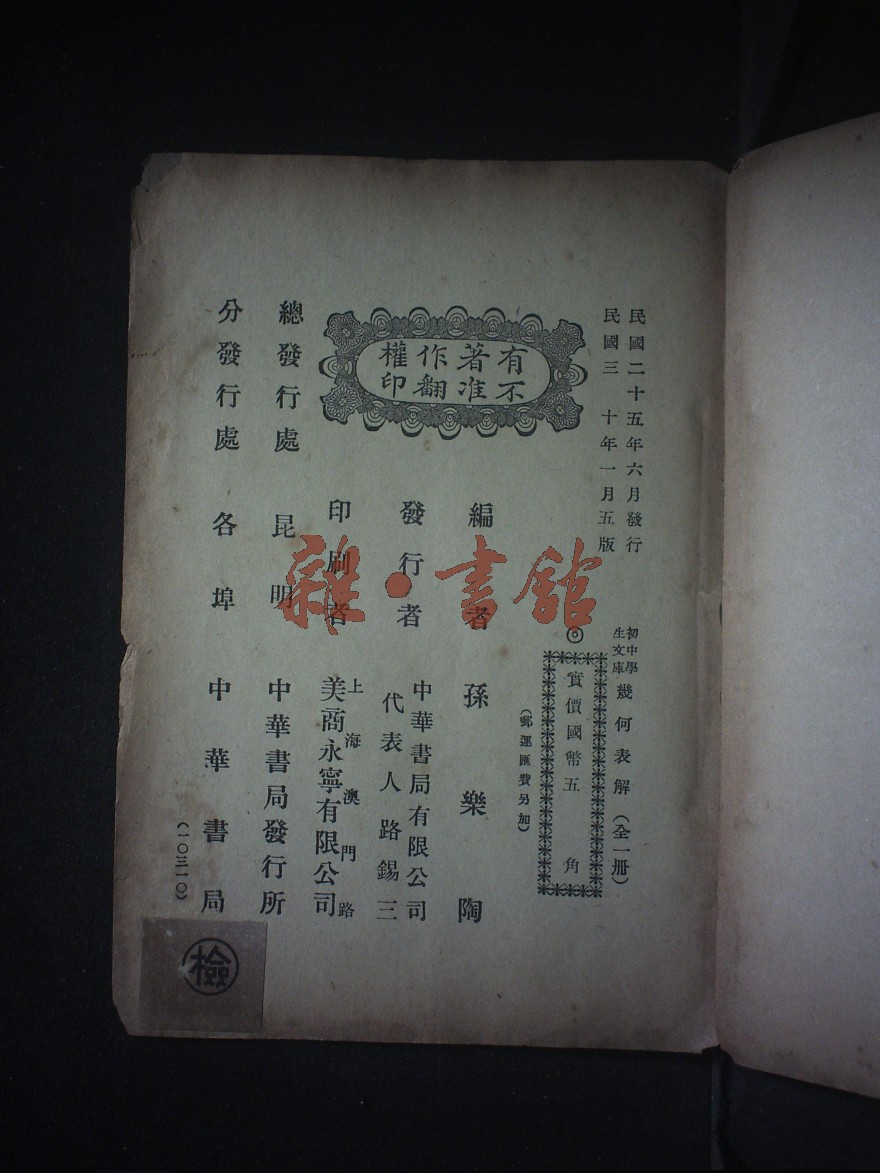 民國二十五年六月發行
民國三十年一月五版
初中學生文庫 幾何表解（全一册）
◎實價國幣五角
（郵運匯費另加）
有著作權
不准翻印
編者 孫樂陶
發行者 中華書局有限公司
代表人路錫三
印刷者 上海澳門路
美商永寧有限公司
總發行處 昆明 中華書局發行所
分發行處 各埠 中華書局
（一〇三一〇）
檢
雜·書館